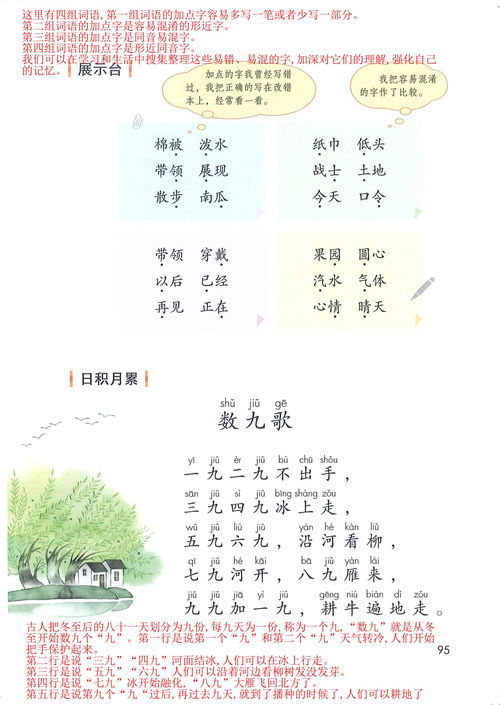 这里有四组词语,第一组词语的加点字容易多写一笔或者少写一部分。
第二组词语的加点字是容易混淆的形近字。
第三组词语的加点字是同音易混字。
第四组词语的加点字是形近同音字。
我们可以在学习和生活中搜集整理这些易错、易混的字,加深对它们的理解,强化自己
的记忆。
展示台
加点的字我曾经写错
过，我把正确的写在改错
本上，经常看一看。
我把容易混淆
的字作了比较。
棉被 泼水
带领 展现
散步 南瓜
纸巾 低头
战士 土地
今天 口令
带领 穿戴
以后 已经
再见 正在
果园 圆心
汽水 气体
心情 晴天
日积月累
shǔ jiǔ gē
数九歌
yī jiǔ èr jiǔ bù chū shǒu
一九二九不出手，
sān jiǔ sì jiǔ bīng shàng zǒu
三九四九冰上走，
wǔ jiǔ liù jiǔ yán hé kàn liǔ
五九六九，沿河看柳，
qī jiǔ hé kāi bā jiǔ yàn lái
七九河开，八九雁来，
jiǔ jiǔ jiā yì jiǔ gēng niú biàn dì zǒu
九九加一九，耕牛遍地走。
古人把冬至后的八十一天划分为九份,每九天为一份,称为一个九,“数九”就是从冬
至开始数九个“九”。第一行是说第一个“九”和第二个“九”天气转冷,人们开始
把手保护起来。
第二行是说“三九”“四九”河面结冰,人们可以在冰上行走。
第三行是说“五九”“六九”人们可以沿着河边看柳树发没发芽。
第四行是说“七九”冰开始融化,“八九”大雁飞回北方了。
第五行是说第九个“九“过后,再过去九天,就到了播种的时候了,人们可以耕地了
95